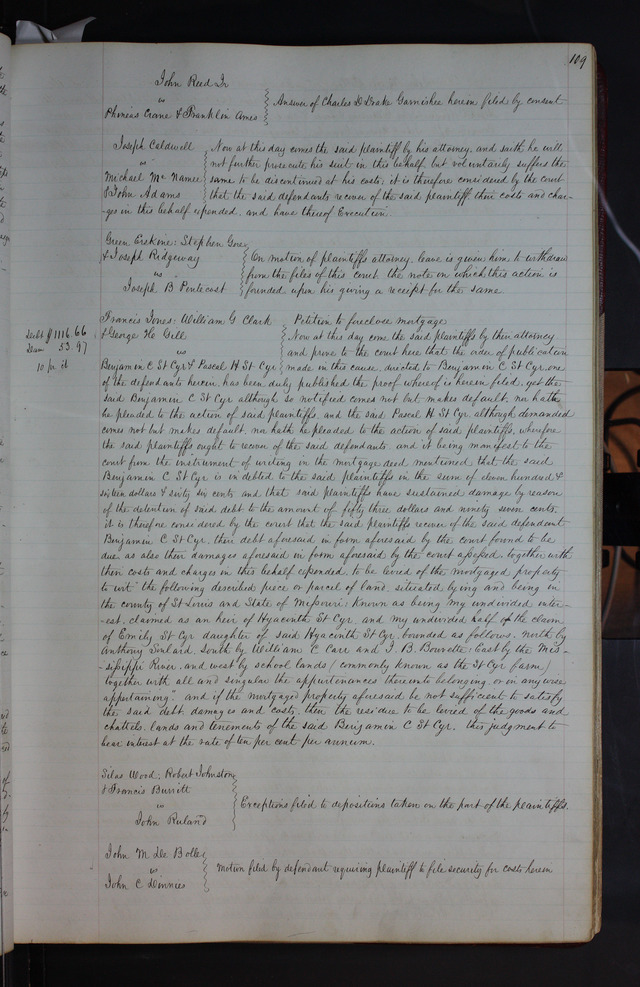 109
John Reed Jr
vs
Phineas Crane & Franklin Ames
Answer of Charles D Drake Garnishee herein filed by consent
Joseph Caldwell
vs
Michael Mc Namee
& John Adams
Now at this day comes the said plaintiff by his attorney, and saith he will
not further prosecute his suit in this behalf but voluntarily suffers the
same to be discontinued at his costs; it is therefore considered by the court
that the said defendants recover of the said plaintiff, their costs and char-
ges in this behalf expended, and have thereof Execution.
Green Erskine: Stephen Gore
& Joseph Ridgeway
vs
Joseph B Pentecost
On motion of plaintiffs attorney, leave is given him to withdraw
from the files of this court the note on which this action is
founded upon his giving a receipt for the same
Francis Jones: William G Clark
& George H. Gill
vs
Benjamin C St Cyr & Pascal H St Cyr
Debt $1116.66
Dam 53.97
10 pr ct
Petition to foreclose mortgage
Now at this day come the said plaintiffs by their attorney
and prove to the court here that the order of publication
made in this cause, directed to Benjamin C St Cyr, one
of the defendants herein, has been duly published the proof whereof is herein filed, yet the
said Benjamin C St Cyr although so notified comes not but makes default, nor hath
he pleaded to the action of said plaintiffs, and the said Pascal H St Cyr although demanded
comes not but makes default, nor hath he pleaded to the action of said plaintiffs, wherefore
the said plaintiffs ought to recover of the said defendants, and it being manifest to the
court from the instrument of writing in the mortgage deed mentioned that the said
Benjamin C St Cyr is indebted to the said plaintiffs in the sum of eleven hundred &
sixteen dollars & sixty six cents and that said plaintiffs have sustained damage by reason
of the detention of said debt to the amount of fifty three dollars and ninety seven cents;
it is therefore considered by the court that the said plaintiffs recover of the said defendant
Benjamin C St Cyr, their debt aforesaid in form aforesaid by the court found to be
due as also their damages aforesaid in form aforesaid by the court assessed, together with
their costs and charges in this behalf expended to be levied of the mortgaged property
to wit "the following described piece or parcel of land, situated lying and being in
the county of St Louis and State of Missouri: known as being my undivided inter-
-est, claimed as an heir of Hyacinth St Cyr, and my undivided half of the claim
of Emily St Cyr daughter of said Hyacinth St Cyr, bounded as follows, North by
Anthony Soulard, South by William C Carr and I. B. Bouvette: East by the Mis-
-sissippi River, and west by school lands (commonly known as the St Cyr farm)
together with all and singular the appurtenances thereunto belonging or in any wise
appertaining", and if the mortgaged property aforesaid be not sufficient to satisfy
the said debt damages and costs, then the residue to be levied of the goods and
chattels, lands and tenements of the said Benjamin C St Cyr, this judgment to
bear interest at the rate of ten per cent per annum.
Silas Wood: Robert Johnston
& Francis Burritt
vs
John Ruland
Exceptions filed to depositions taken on the part of the plaintiffs.
John M De Bolle
vs
John C Dinnies
Motion filed by defendant requiring plaintiff to file security for costs herein